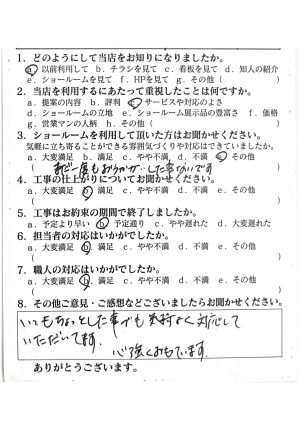 1. どのようにして当店をお知りになりましたか。
a. 以前利用して b. チラシを見て c. 看板を見て d. 知人の紹介
e. ショールームを見て f. HPを見て g. その他（ ）
2. 当店を利用するにあたって重視したことは何ですか。
a. 提案の内容 b. 評判 c. サービスや対応のよさ
d. ショールームの立地 e. ショールーム展示品の豊富さ f. 価格
g. 営業マンの人柄 h. その他（ ）
3. ショールームを利用して頂いた方はお聞かせください。
気軽に立ち寄ることができる雰囲気づくりや対応はできていましたか。
a. 大変満足 b. 満足 c. やや不満 d. 不満 e. その他
（まだ一度もおうかがいした事がないです ）
4. 工事の仕上がりについてお聞かせください。
a. 大変満足 b. 満足 c. やや不満 d. 不満 e. その他
（ ）
5. 工事はお約束の期間で終了しましたか。
a. 予定より早い b. 予定通り c. やや遅れた d. 大変遅れた
6. 担当者の対応はいかがでしたか。
a. 大変満足 b. 満足 c. やや不満 d. 不満 e. その他
（ ）
7. 職人の対応はいかがでしたか。
a. 大変満足 b. 満足 c. やや不満 d. 不満 e. その他
（ ）
8. その他ご意見・ご感想などございましたらお聞かせください。
いつもちょっとした事でも気持よく対応して
いただいてます。
心強く思っています。
ありがとうございます。